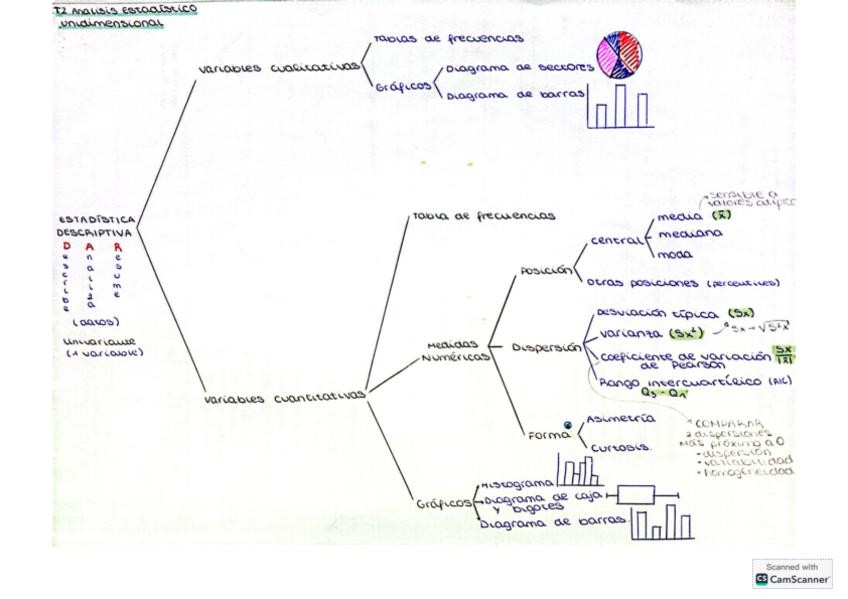 T2 Analisis Estadistico
unidimensional
Tablas de frecuencias
Variables cualitativas
Gráficos
Diagrama de sectores
Diagrama de barras
ESTADÍSTICA
DESCRIPTIVA
D A R
Describe
Analiza
Resume
(datos)
Univariante
(1 variable)
Tabla de frecuencias
sensible a
valores atípico
media (x̄)
central
mediana
moda
Posición
otras posiciones (percentiles)
Medidas
Numéricas
Dispersión
Desviación típica (Sx)
varianza (Sx²)
Sx → √S²x
coeficiente de variación Sx/|x̄|
de Pearson
Rango intercuartílico (RIC)
Q3 - Q1
* COMPARAR
2 dispersiones
Más próximo a 0
- dispersión
- variabilidad
+ homogeneidad
Variables cuantitativas
Forma
Asimetría
Curtosis.
Gráficos
Histograma
Diagrama de caja
y bigotes
Diagrama de barras.
Scanned with
CS CamScanner